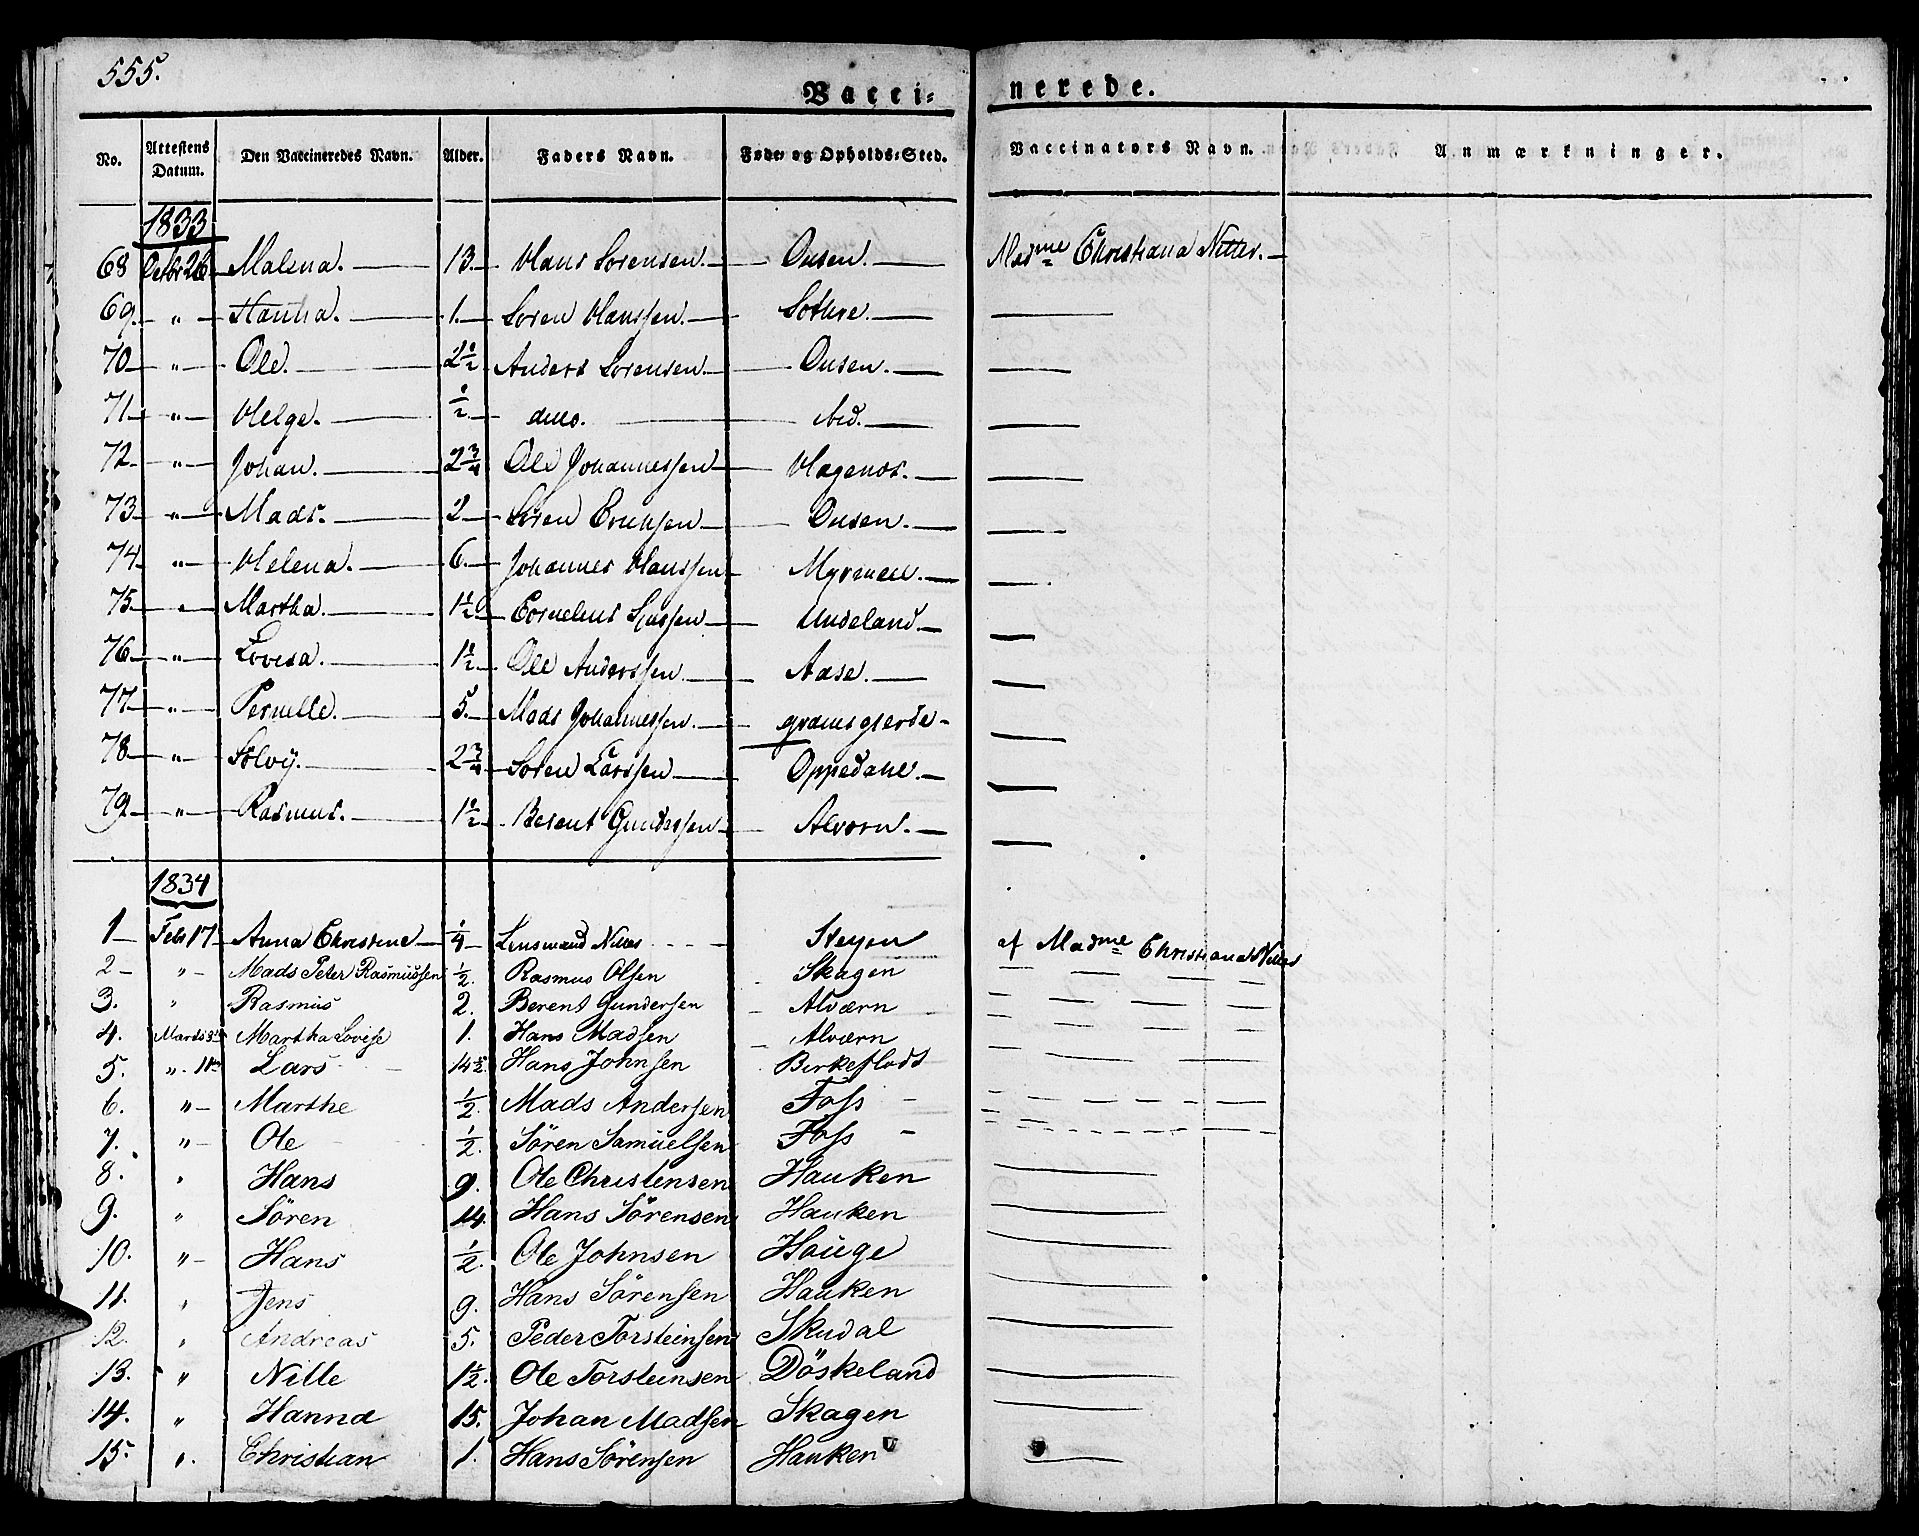 555.
Vacci- nerede.
No. Attestens Datum. Den Vaccineredes Navn. Alder. Faders Navn. Føde- og Opholds-Sted. Vaccinators Navn. Anmærkninger.
1833
68 Octbr 26 Malena. 13. Hans Sørensen. Ousen. Madme Christiana Nitter.
69. " Hanna. 1. Søren Hanssen. Sothre.
70 " Ole. 2½ Anders Sorensen. Ousen.
71 " Helge. ½ ditto. ibid.
72. " Johan. 2¾ Ole Johannessen Hagenes.
73 " Mads. 2 Søren Ericksen Ousen.
74 " Helena. 6. Johannes Hanssen Myremen.
75 " Martha. 1½ Cornelius Hanssen Undeland.
76 " Lovisa. 1½ Ole Anderssen. Aase.
77 " Pernille. 5. Mads Johannessen. gramsgierde
78 " Solvij. 2¾ Søren Larssen Oppedahl.
79 " Rasmus. 1½ Berent Gunderssen Alvorn.
1834
1 Febr 17 Anna Christine ¼ Lensmand Nitter Steyen af Madme Christiana Nitter
2 " Mads Peter Rasmussen ½ Rasmus Olsen Skagen
3. " Rasmus 2. Berent Gundersen Alværn
4. Marts Martha Lovise 1. Hans Madsen Alværn
5. " Lars 14½ Hans Johnsen Birkeflodt
6. " Marthe ½ Mads Andersen Foss
7. " Ole ½ Søren Samuelsen Foss
8. " Hans 9. Ole Christensen Hauken
9. " Søren 14. Hans Sørensen Hauken
10. " Hans ½ Ole Johnsen Hauge
11. " Jens 9. Hans Sørensen Hauken
12. " Andreas 5. Peder Torsteinsen Skudal
13. " Nille 1½. Ole Torsteinsen Döskeland
14. " Hanna 15. Johan Madsen Skagen
15. " Christian 1. Hans Sørensen Hauken